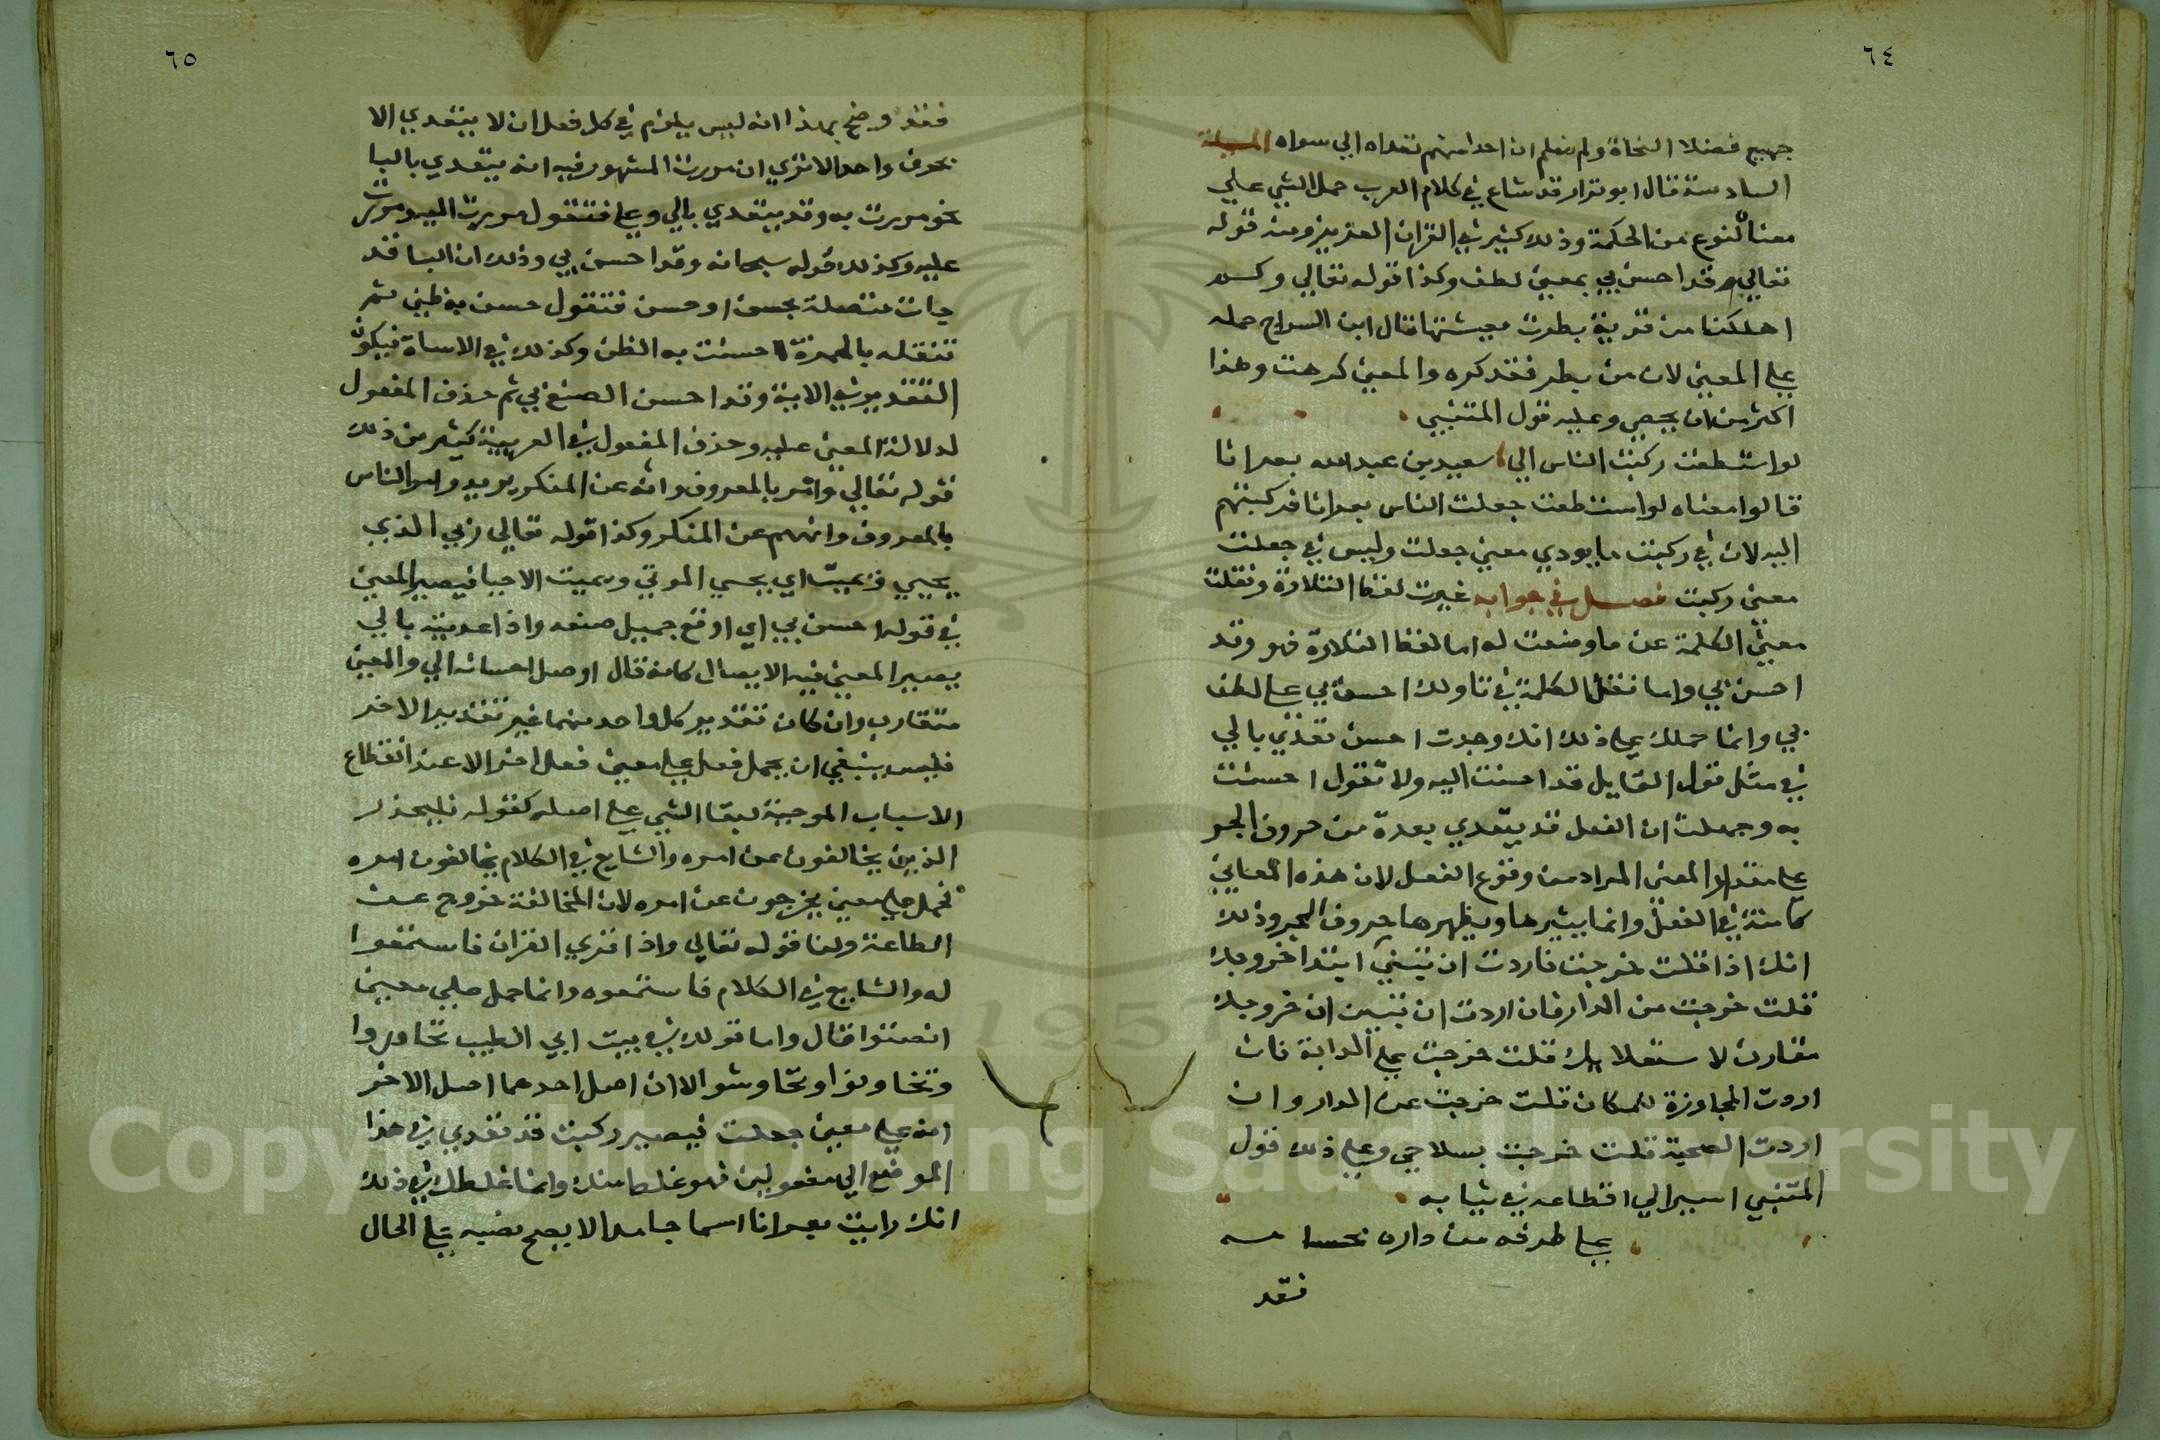 ٦٤
جميع فضلا النحاة ولم نعلم ان احدا منهم تعداه الي سواه المسيلة
السادسة قال ابو نزار قد شاع في كلام العرب حمل الشي علي
معناه لنوع من الحكمة وذلك كثير في القران العزيز ومنه قوله
تعالي وقد احسن بي بمعني لطف وكذا قوله تعالي وكم
اهلكنا من قرية بطرت معيشتها قال ابن السراج حمله
علي المعني لان من بطر فقد كره والمعني كرهت وهذا
اكثر من ان يحصي وعليه قول المتنبي
لو استطعت ركبت الناس الي سعيد بن عبد الله بعرانا
قالوا معناه لو استطعت جعلت الناس بعرانا فركبتهم
اليه لان في ركبت ما يودي معني جعلت وليس في جعلت
معني ركبت فصل في جوابه غيرت لفظ التلاوة ونقلت
معني الكلمة عن ما وضعت له اما لفظ التلاوة فهو وقد
احسن بي واما نقل الكلمة في تاولك احسن بي علي لطف
بي وانما حملك علي ذلك انك وجدت احسن تعدي بالي
في مثل قول القايل قد احسنت اليه ولا تقول احسنت
به وجهلت ان الفعل قد يتعدي بعدة من حروف الجر
علي مقدار المعني المراد من وقوع الفعل لان هذه المعاني
كامنة في الفعل وانما يثيرها ويظهرها حروف الجر وذلك
انك اذا قلت خرجت فاردت ان تبين ابتدا خروجك
قلت خرجت من الدار فان اردت ان تبين ان خروجك
مقارن لاستعلايك قلت خرجت علي الدابة فان
اردت المجاوزة للمكان قلت خرجت عن الدار وان
اردت الصحبة قلت خرجت بسلاحي وعلي ذلك قول
المتنبي اسير الي اقطاعه في ثيابه
علي طرفه من داره بحسامه
فقد
٦٥
فقد وضح بهذا انه ليس يلزم في كل فعل ان لا يتعدي الا
بحرف واحد الا تري ان مررت المشهور فيه انه يتعدي بالبا
نحو مررت به وقد يتعدي بالي وعلي فتقول مررت اليه ومررت
عليه وكذلك قوله سبحانه وقد احسن بي وذلك ان البا قد
جات متصلة بحسن او حسن فتقول حسن به ظني ثم
تنقله بالهمزة احسنت به الظن وكذلك في الاساة فيكون
التقدير في الاية وقد احسن الصنع بي ثم حذف المفعول
لدلالة المعني عليه وحذف المفعول في العربية كثير من ذلك
قوله تعالي وامر بالمعروف وانه عن المنكر يريد وامر الناس
بالمعروف وانههم عن المنكر وكذا قوله تعالي ربي الذي
يحيي ويميت اي يحيي الموتي ويميت الاحيا فيصير المعني
في قوله احسن بي اي اوقع جميل صنعه واذا عديته بالي
يصير المعني فيه الايصال كانه قال اوصل احسانه الي والمعني
متقارب وان كان تقدير كل واحد منهما غير تقدير الاخر
فليس ينبغي ان يحمل فعل علي معني فعل اخر الا عند انقطاع
الاسباب الموجبة لبقا الشي علي اصله كقوله فليحذر
الذين يخالفون عن امره والشايع في الكلام يخالفون امره
فحمل علي معني يخرجون عن امره لان المخالفة خروج عن
الطاعة ولنا قوله تعالي واذا قري القران فاستمعوا
له والشايع في الكلام فاستمعوه وانما حمل علي معني
انصتوا قال واما قولك في بيت ابي الطيب تحاوروا
وتحاولوا وتحاوشوا الا ان اصل احدهما اصل الاخر
انه علي معني جعلت فيصير ركبت قد تعدي في هذا
الموضع الي مفعولين فهو غلط منك وانما غلطك في ذلك
انك رايت بعرانا اسما جامدا لا يصح نصبه علي الحال
Copyright © King Saud University
1957